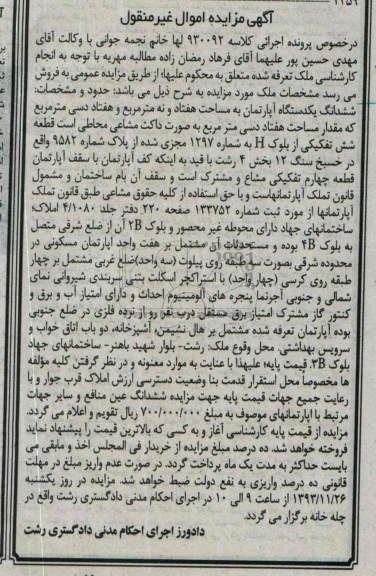 آگهی مزایده اموال غیرمنقول
درخصوص پرونده اجرائی کلاسه ۹۳۰۰۹۲ لها خانم نجمه جوانی با وکالت آقای
مهدی حسین پور علیهما آقای فرهاد رمضان زاده مطالبه مهریه با توجه به انجام
کارشناسی ملک تعرفه شده متعلق به محکوم علیها؛ از طریق مزایده عمومی به فروش
می رسد مشخصات ملک مورد مزایده به شرح ذیل می باشد: حدود و مشخصات:
ششدانگ یکدستگاه آپارتمان به مساحت هفتاد و نه مترمربع و هفتاد دسی مترمربع
که مقدار مساحت هفتاد دسی متر مربع به صورت داکت مشاعی محاطی است قطعه
شش تفکیکی از بلوک H به شماره ۱۲۹۷ مجزی شده از پلاک شماره ۹۵۸۲ واقع
در خسبخ سنگ ۱۲ بخش ۴ رشت با قید به اینکه کف آپارتمان با سقف آپارتمان
قطعه چهارم تفکیکی مشاع و مشترک است و سقف آن بام ساختمان و مشمول
قانون تملک آپارتمانهاست و با حق استفاده از کلیه حقوق مشاعی طبق قانون تملک
آپارتمانها از مورد ثبت شماره ۱۳۳۷۵۲ صفحه ۲۲۰ دفتر جلد ۴/۱۰۸۰ املاک؛
ساختمانهای جهاد دارای محوطه غیر محصور و بلوک ۲B آن از ضلع شرقی متصل
به بلوک ۴B بوده و مستحدثات آن مشتمل بر هفت واحد آپارتمان مسکونی در
محدوده شرقی بصورت سه طبقه روی پیلوت (سه واحد)ضلع غربی مشتمل بر چهار
طبقه روی کرسی (چهار واحد) با استراکچر اسکلت بتنی سربندی شیروانی نمای
شمالی و جنوبی آجرنما پنجره های آلومینیوم احداث و دارای امتیاز آب و برق و
کنتور گاز مشترک امتیاز برق مستقل درب نفر رو از نرده فلزی در ضلع جنوبی
بوده آپارتمان تعرفه شده مشتمل بر هال نشیمن، آشپزخانه، دو باب اتاق خواب و
سرویس بهداشتی. محل وقوع ملک: رشت- بلوار شهید باهنر- ساختمانهای جهاد
بلوک ۳B. قیمت پایه؛ علیهذا با عنایت به موارد معنونه و در نظر گرفتن کلیه مؤلفه
ها مخصوصاً محل استقرار قدمت بنا وضعیت دسترسی ارزش املاک قرب جوار و با
رعایت جمیع جهات قیمت پایه جهت مزایده ششدانگ عین منافع و سایر جهات
مرتبط با آپارتمانهای موصوف به مبلغ ۷۰۰/۰۰۰/۰۰۰ ریال تقویم و اعلام می گردد.
مزایده از قیمت پایه کارشناسی آغاز و به کسی که بالاترین قیمت را پیشنهاد نماید
فروخته خواهد شد. ده درصد مبلغ مزایده از خریدار فی المجلس اخذ و مابقی می
بایست حداکثر به مدت یک ماه پرداخت گردد. در صورت عدم واریز مبلغ در مهلت
قانونی ده درصد واریزی به نفع دولت ضبط خواهد شد. مزایده در روز یکشنبه
۱۳۹۳/۱۱/۲۶ از ساعت ۹ الی ۱۰ در اجرای احکام مدنی دادگستری رشت واقع در
چله خانه برگزار می گردد.
دادورز اجرای احکام مدنی دادگستری رشت